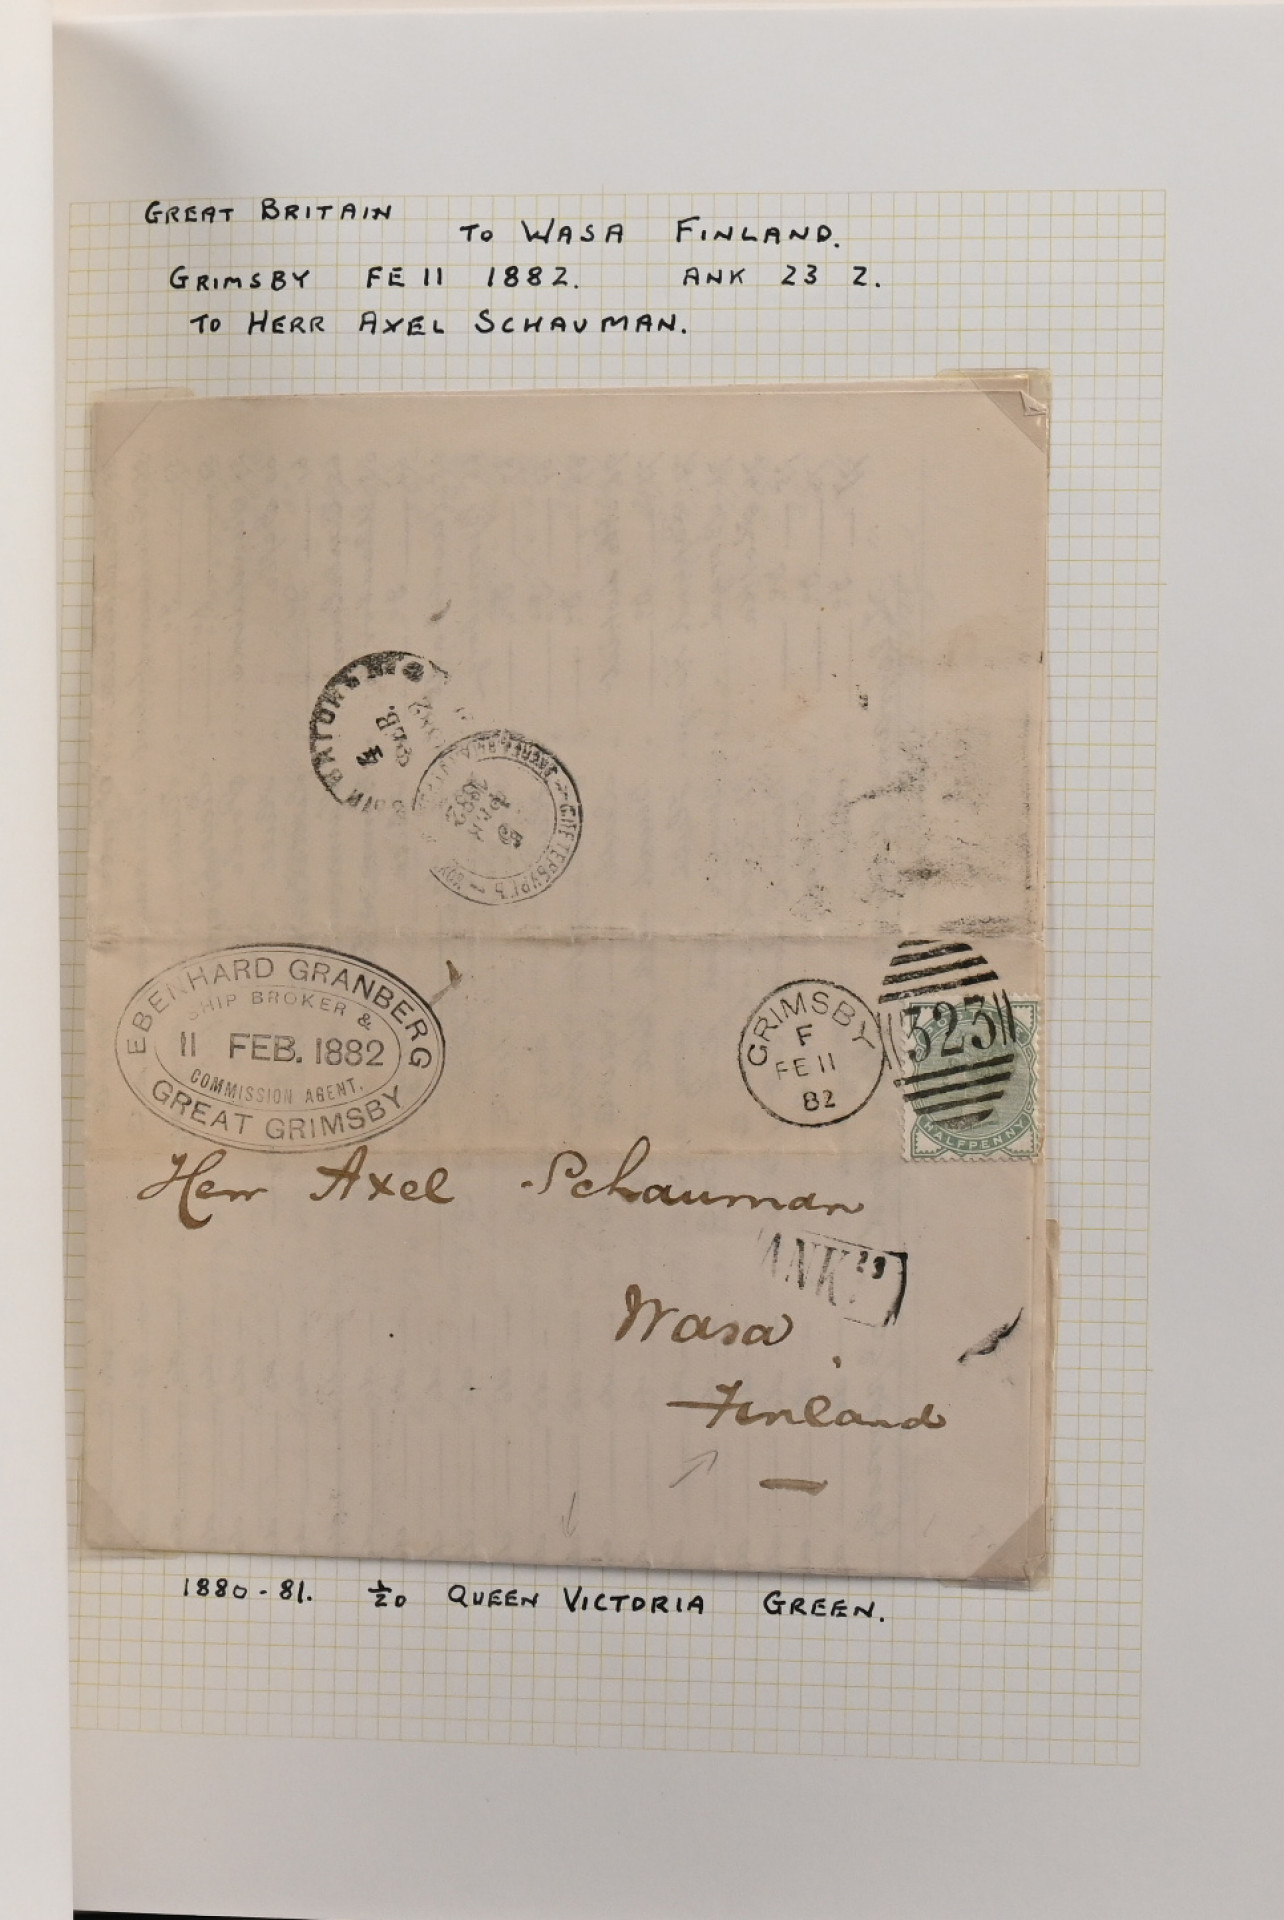 GREAT BRITAIN
TO WASA FINLAND.
GRIMSBY FE 11 1882. ANK 23 2.
TO HERR AXEL SCHAUMAN.
ФЕВ.
1882
С.ПЕТЕРБУРГЪ
1882
EBENHARD GRANBERG
SHIP BROKER &
11 FEB. 1882
COMMISSION AGENT.
GREAT GRIMSBY
GRIMSBY
F
FE 11
82
323
HALFPENNY
Herr Axel Schauman
ANK
Wasa
Finland
1880-81. ½D QUEEN VICTORIA GREEN.